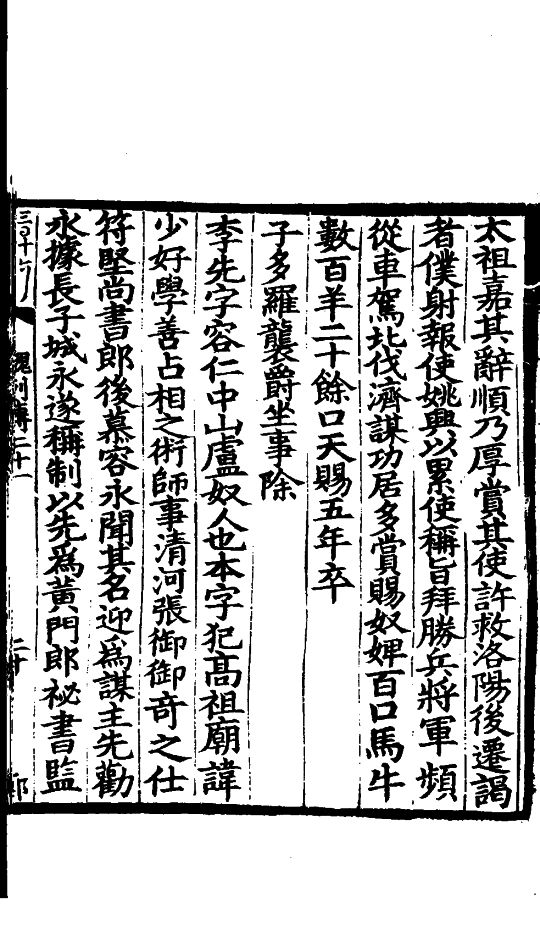 太祖嘉其辭順乃厚賞其使許救洛陽後遷謁
者僕射報使姚興以累使稱旨拜勝兵將軍頻
從車駕北伐濟謀功居多賞賜奴婢百口馬牛
數百羊二十餘口天賜五年卒
子多羅襲爵坐事除
李先字容仁中山盧奴人也本字犯高祖廟諱
少好學善占相之術師事清河張御御奇之仕
苻堅尚書郎後慕容永聞其名迎爲謀主先勸
永據長子城永遂稱制以先爲黃門郎祕書監
列傳二十一
二十